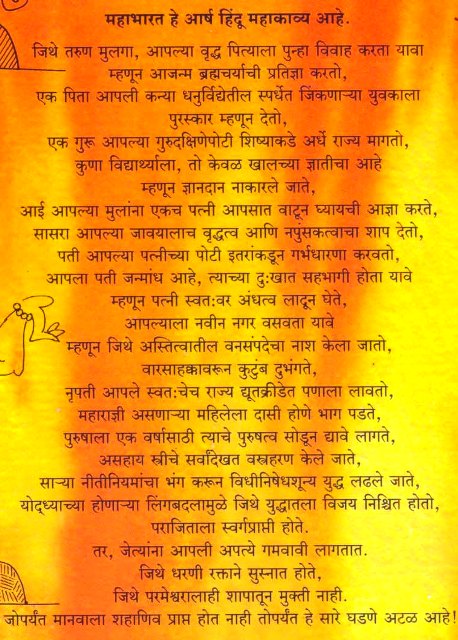 महाभारत हे आर्ष हिंदू महाकाव्य आहे.
जिथे तरुण मुलगा, आपल्या वृद्ध पित्याला पुन्हा विवाह करता यावा
म्हणून आजन्म ब्रह्मचर्याची प्रतिज्ञा करतो,
एक पिता आपली कन्या धनुर्विद्येतील स्पर्धेत जिंकणाऱ्या युवकाला
पुरस्कार म्हणून देतो,
एक गुरू आपल्या गुरुदक्षिणेपोटी शिष्याकडे अर्धे राज्य मागतो,
कुणा विद्यार्थ्याला, तो केवळ खालच्या ज्ञातीचा आहे
म्हणून ज्ञानदान नाकारले जाते,
आई आपल्या मुलांना एकच पत्नी आपसात वाटून घ्यायची आज्ञा करते,
सासरा आपल्या जावयालाच वृद्धत्व आणि नपुंसकत्वाचा शाप देतो,
पती आपल्या पत्नीच्या पोटी इतरांकडून गर्भधारणा करवतो,
आपला पती जन्मांध आहे, त्याच्या दुःखात सहभागी होता यावे
म्हणून पत्नी स्वतःवर अंधत्व लादून घेते,
आपल्याला नवीन नगर वसवता यावे
म्हणून जिथे अस्तित्वातील वनसंपदेचा नाश केला जातो,
वारसाहक्कावरून कुटुंब दुभंगते,
नृपती आपले स्वतःचेच राज्य द्यूतक्रीडेत पणाला लावतो,
महाराज्ञी असणाऱ्या महिलेला दासी होणे भाग पडते,
पुरुषाला एक वर्षासाठी त्याचे पुरुषत्व सोडून द्यावे लागते,
असहाय स्त्रीचे सर्वांदेखत वस्त्रहरण केले जाते,
साऱ्या नीतीनियमांचा भंग करून विधीनिषेधशून्य युद्ध लढले जाते,
योद्ध्याच्या होणाऱ्या लिंगबदलामुळे जिथे युद्धातला विजय निश्चित होतो,
पराजिताला स्वर्गप्राप्ती होते.
तर, जेत्यांना आपली अपत्ये गमवावी लागतात.
जिथे धरणी रक्ताने सुस्नात होते,
जिथे परमेश्वरालाही शापातून मुक्ती नाही.
जोपर्यंत मानवाला शहाणिव प्राप्त होत नाही तोपर्यंत हे सारे घडणे अटळ आहे!